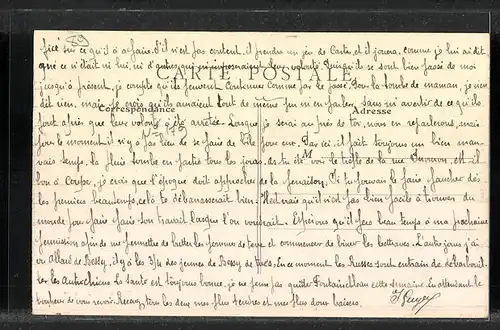 89
fixé sur ce qu'il a à faire. S'il n'est pas content, il prendra un jeu de Carte, et il jouera, comme je lui ai dit
que ce n'était ni lui, ni d'autres, qui m'imposeraient leur volonté. Puisqu'ils se sont bien passé de moi
CARTE POSTALE
jusqu'à présent, je compte qu'ils peuvent continuer comme par le passé. Pour la tombe de maman, je n'en
dit rien, mais je crois qu'ils auraient tout de même pu m'en parler, sans m'avertir de ce qu'ils
Correspondance
Adresse
font après que leur volonté a été arrêtée. Lorsque je serai auprès de toi, nous en reparlerons, mais
pour le moment il n'y a pas lieu de se faire de bile pour eux. Par ici, il fait toujours un bien mau-
M
vais temps, la pluie tombe en partie tous les jours. As-tu été voir le trèfle de la rue, est-il
bon à couper, je crois que l'époque doit approcher de la fenaison. Si tu pouvais le faire faucher dès
les premiers beaux temps, cela te débarrasserait bien. Il est vrai qu'il n'est pas bien facile à trouver du
monde pour faire son travail lorsque l'on voudrait. Espérons qu'il fera beau temps à ma prochaine
permission afin de me permettre de butter les pommes de terre et commencer de biner les betteraves. L'autre jour j'ai
vu Allard de Bessy, il y a les 3/4 des jeunes de Bessy de tués. En ce moment les Russes sont en train de
les Autrichiens. La santé est toujours bonne, je ne pense pas quitter Fontainebleau cette semaine. En attendant le
bonheur de vous revoir, Recevez tous les deux mes plus tendres et mes plus doux baisers.